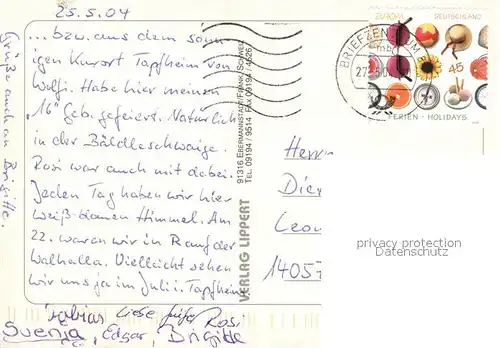 25.5.04
... bzw. aus dem sonn-
igen Kurort Tapfheim von
Wolfi. Habe hier meinen
"16" Geb. gefeiert. Natürlich
in der Bäldleschwaige.
Rosi war auch mit dabei.
Jeden Tag haben wir hier
weiß-blauen Himmel. Am
22. waren wir in Rand der
Walhalla. Vielleicht sehen
wir uns ja im Juli i. Tapfheim.
Tobias Liebe Grüße Rosi
Svenja, Edgar, Brigitte
Grüße auch an Brigitte.
VERLAG LIPPERT
91316 EBERMANNSTADT/FRÄNK. SCHWEIZ
TEL. 09194 / 9514 FAX 09194 / 4526
BRIEFZENTRUM
EUROPA DEUTSCHLAND
45
FERIEN · HOLIDAYS
Herrn
14057
privacy protection
Datenschutz